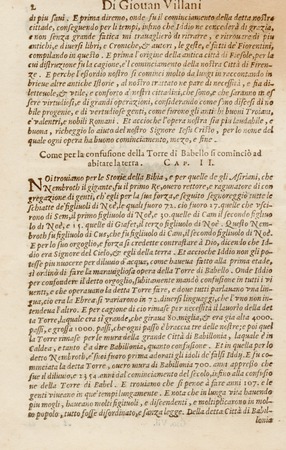 2 Di Giouan Villani
di piu saui. E prima diremo, onde fu il cominciamento della detta nostra
cittade, conseguendo per li tempi, infino che Iddio ne concederà di grazia,
e non senza grande fatica mi trauaglierò di ritrarre, e ritrouare di piu
antichi, e diuersi libri, e Croniche, & autori, le geste, e fatti de Fiorentini,
compilando in questo. E prima l'origine della antica città di Fiesole, per la
cui distruzione fu la cagione, e'l cominciamento della nostra Città di Firen-
ze. E perche l'esordio nostro si cominci molto da lungi in raccontando in
brieue altre antiche storie, al nostro trattato ne pare di necessità, e fia di-
letteuole, & vtile, e conforto a' nostri cittadini, che sono, e che saranno in es-
ser virtudiosi, e di grandi operazioni, considerando come sono discesi di no-
bile progenie, e di vertudiose genti, come furono gli antichi buoni Troiani,
e valentri, e nobili Romani. Et accioche l'opera nostra sia piu laudabile, e
buona, richieggio lo aiuto del nostro Signore Iesu Cristo, per lo nome del
quale ogni opera ha buono cominciamento, mezo, e fine.
Come per la confusione della Torre di Babello si cominciò ad
abitare la terra. CAP. II.
NOi trouiamo per le Storie della Bibia, e per quelle de gli Asiriani, che
Nembroth il gigante, fu il primo Re, ouero rettore, e ragunatore di con-
gregazione di genti, ch'egli per la sua forza, e seguito signoreggiò tutte le
schiatte de figliuoli di Noè, le quali furono 72. cio furono 27. quelle che vsci-
rono di Sem, il primo figliuolo di Noè, e 30. quelle di Cam il secondo figliuo-
lo di Noè, e 15. quelle di Giafet, il terzo figliuolo di Noè. Questo Nem-
broth fu figliuolo di Cus, che fu figliuolo di Cam, il secondo figliuolo di Noè.
E per lo suo orgoglio, e forza si credette contrastare à Dio, dicendo che Id-
dio era Signore del Cielo, & egli della terra. Et accioche Iddio non gli po-
tesse piu nuocere per diluuio d'acqua, come hauea fatto alla prima etade,
sì ordinò di fare la marauigliosa opera della Torre di Babello. Onde Iddio
per confondere il detto orgoglio, subitamente mandò confusione in tutti i vi-
uenti, e che operauano la detta Torre fare, e doue tutti parlauano vna lin-
gua, cio era la Ebrea si variarono in 72. diuersi linguaggi, che l'vno non in-
tendeua l'altro. E per cagione di cio rimase per necessità il lauoro della det-
ta Torre, laquale era sì grande, che giraua 80. miglia, & era gia alta 4000.
passi, e grossa 1000. passi, che ogni passo è braccia tre delle nostre; e poi quel
la Torre rimase per le mura della grande Città di Babillonia, laquale è in
Caldea, e tanto è a dire Babillonia, quanto confusione. Et in quella per lo
detto Nembroth, e' suoi furo prima adorati gli idoli de' falsi Idij. E fu comin-
ciata la detta Torre, ouero mura di Babillonia 700. anni appresso che
fue il diluuio, e 2354. anni dal cominciamento del secolo, insino alla confusio-
ne della Torre di Babel. E trouiamo che si penò à fare anni 107. e le
genti viueano in que' tempi lungamente. E nota che in lunga vita hauendo
piu mogli, haueano molti figliuoli, e discendenti, e multiplicarono in mol-
to popolo, tutto fosse disordinato, e sanza legge. Della detta Città di Babil-
lonia